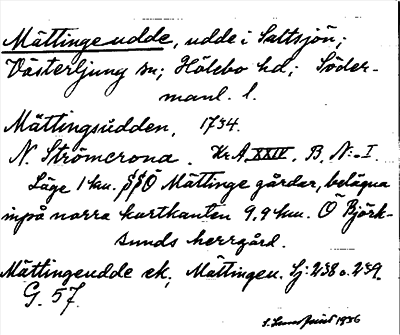 Mättinge udde, udde i Saltsjön;
Västerljung sn; Hölebo hd; Söder-
manl. l.
Mättingsudden, 1734.
N. Strömcrona. Kr.A. XXIV. B. N:o I.
Läge 1 km. SSO Mättinge gårdar, belägna
inpå norra kartkanten 9,9 km. O Björk-
sunds herrgård.
Mättingeudde ek, Mättingen. Sj: 238 o. 239.
G. 57.
1936